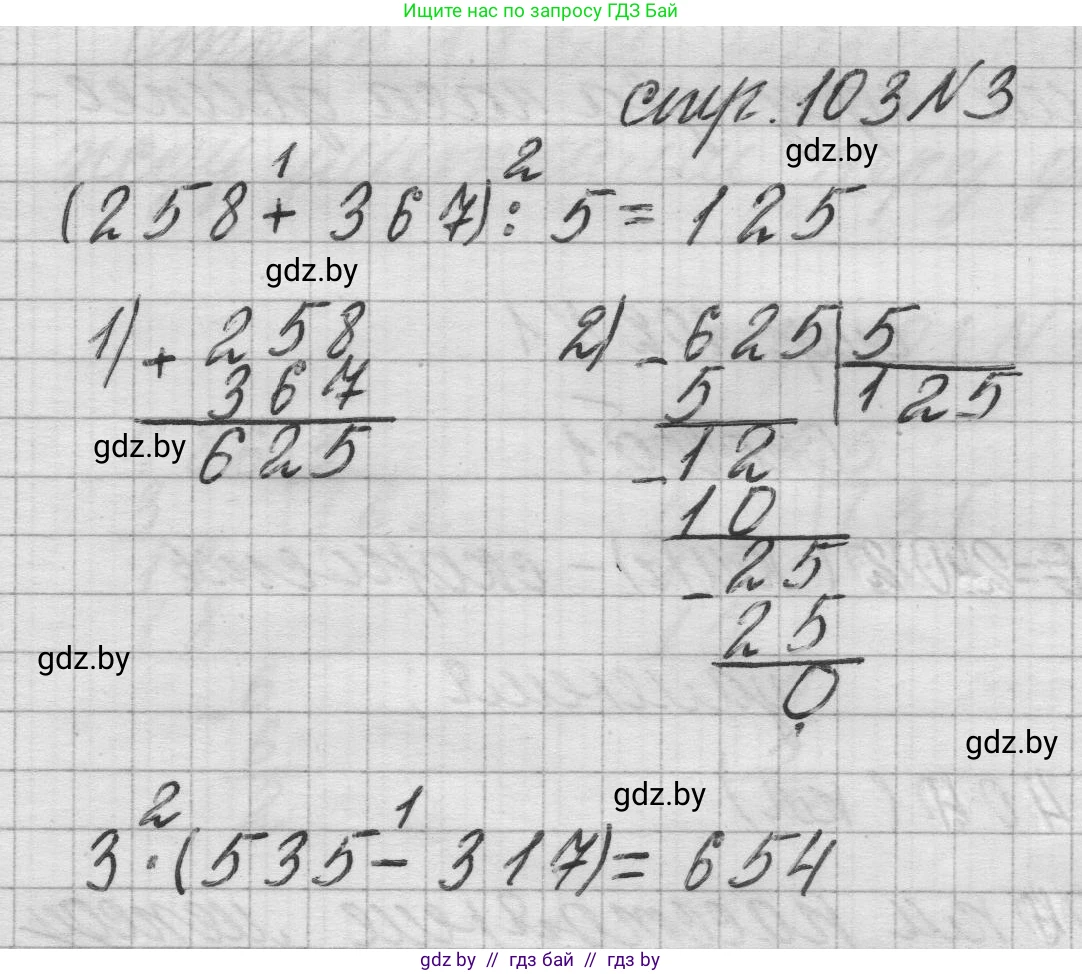 Ищите нас по запросу ГДЗ Бай
стр. 103 №3
gdz.by
1 2
(258 + 367) : 5 = 125
gdz.by
1) + 258
367
625
gdz.by
2) - 625 | 5
5 125
- 12
10
- 25
25
0
gdz.by
gdz.by
gdz.by
2 1
3 · (535 - 317) = 654
gdz by // гдз бай // gdz by